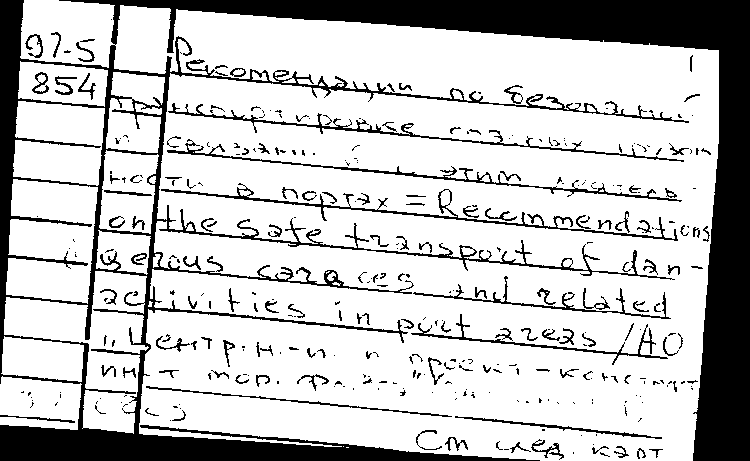 97-5 Рекомендации по безопасной
854 транспортировке опасных грузов
и связанной с этим деятель-
ности в портах = Recommendations
on the safe transport of dan-
gerous cargoes and related
activities in port areas / АО
"Центр. н.-и. и проект.-конструкт.
ин-т мор. флота"
См след. карт